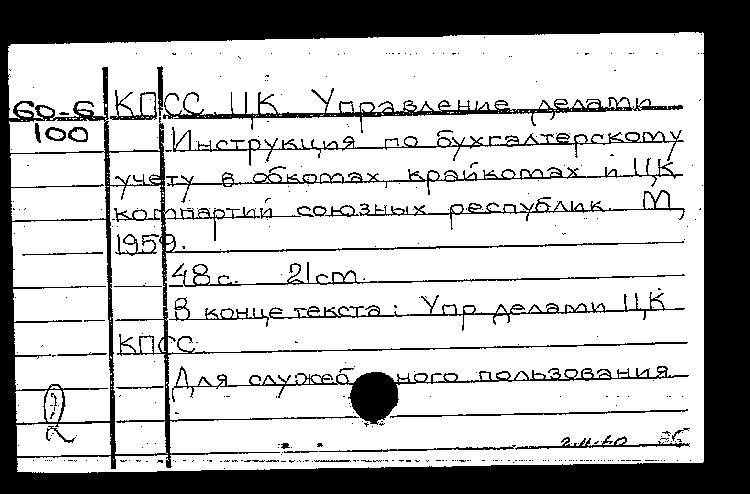 60-6 КПСС. ЦК. Управление делами
100 Инструкция по бухгалтерскому
учету в обкомах, крайкомах и ЦК
компартий союзных республик. М,
1959.
48 с. 21 см.
В конце текста: Упр делами ЦК
КПСС
Для служебного пользования
2